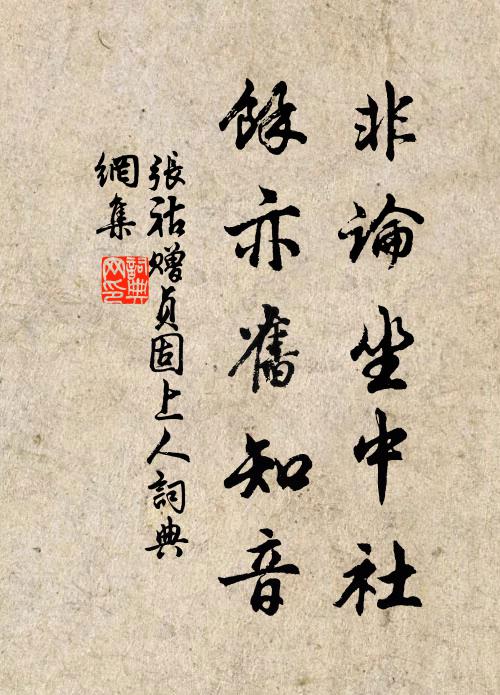 非論坐中社
餘亦舊知音
張祜贈貞固上人詞典
網集
詞典網印